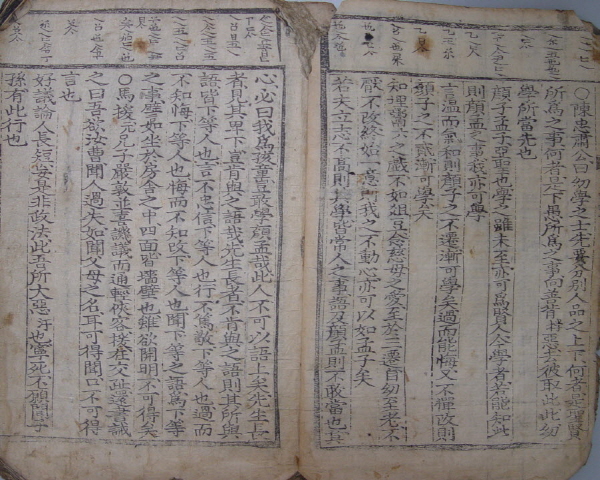 ○陳忠肅公曰幼學之士先要分別人品之上下何者是聖賢
所爲之事何者是下愚所爲之事向善背惡去彼取此此幼
學所當先也
顔子孟子亞聖也學之雖未至亦可爲賢人今學者若能知此
則顔孟之事我亦可學
言溫而氣和則顔子之不遷漸可學矣過而能悔又不憚改則
顔子之不貳漸可學矣
知埋鬻之戲不如俎豆念慈母之愛至於三遷自幼至老不
厭不改終始一意則我之不動心亦可以如孟子矣
若夫立志不高則其學皆常人之事語及顔孟則不敢當也其
心必曰我爲孩童豈敢學顔孟哉此人不可以語上矣先生長
者見其卑下豈肯與之語哉先生長者不肯與之語則其所與
語皆下等人也言不忠信下等人也行不篤敬下等人也過而
不知悔下等人也悔而不知改下等人也聞下等之語爲下等
之事譬如坐於房舍之中四面皆墻壁也雖欲開明不可得矣
○馬援兄子嚴敦並喜譏議而通輕俠客援在交趾還書誡
之曰吾欲汝曹聞人過失如聞父母之名耳可得聞口不可得
言也
好議論人長短妄是非政法此吾所大惡也寧死不願聞子
孫有此行也